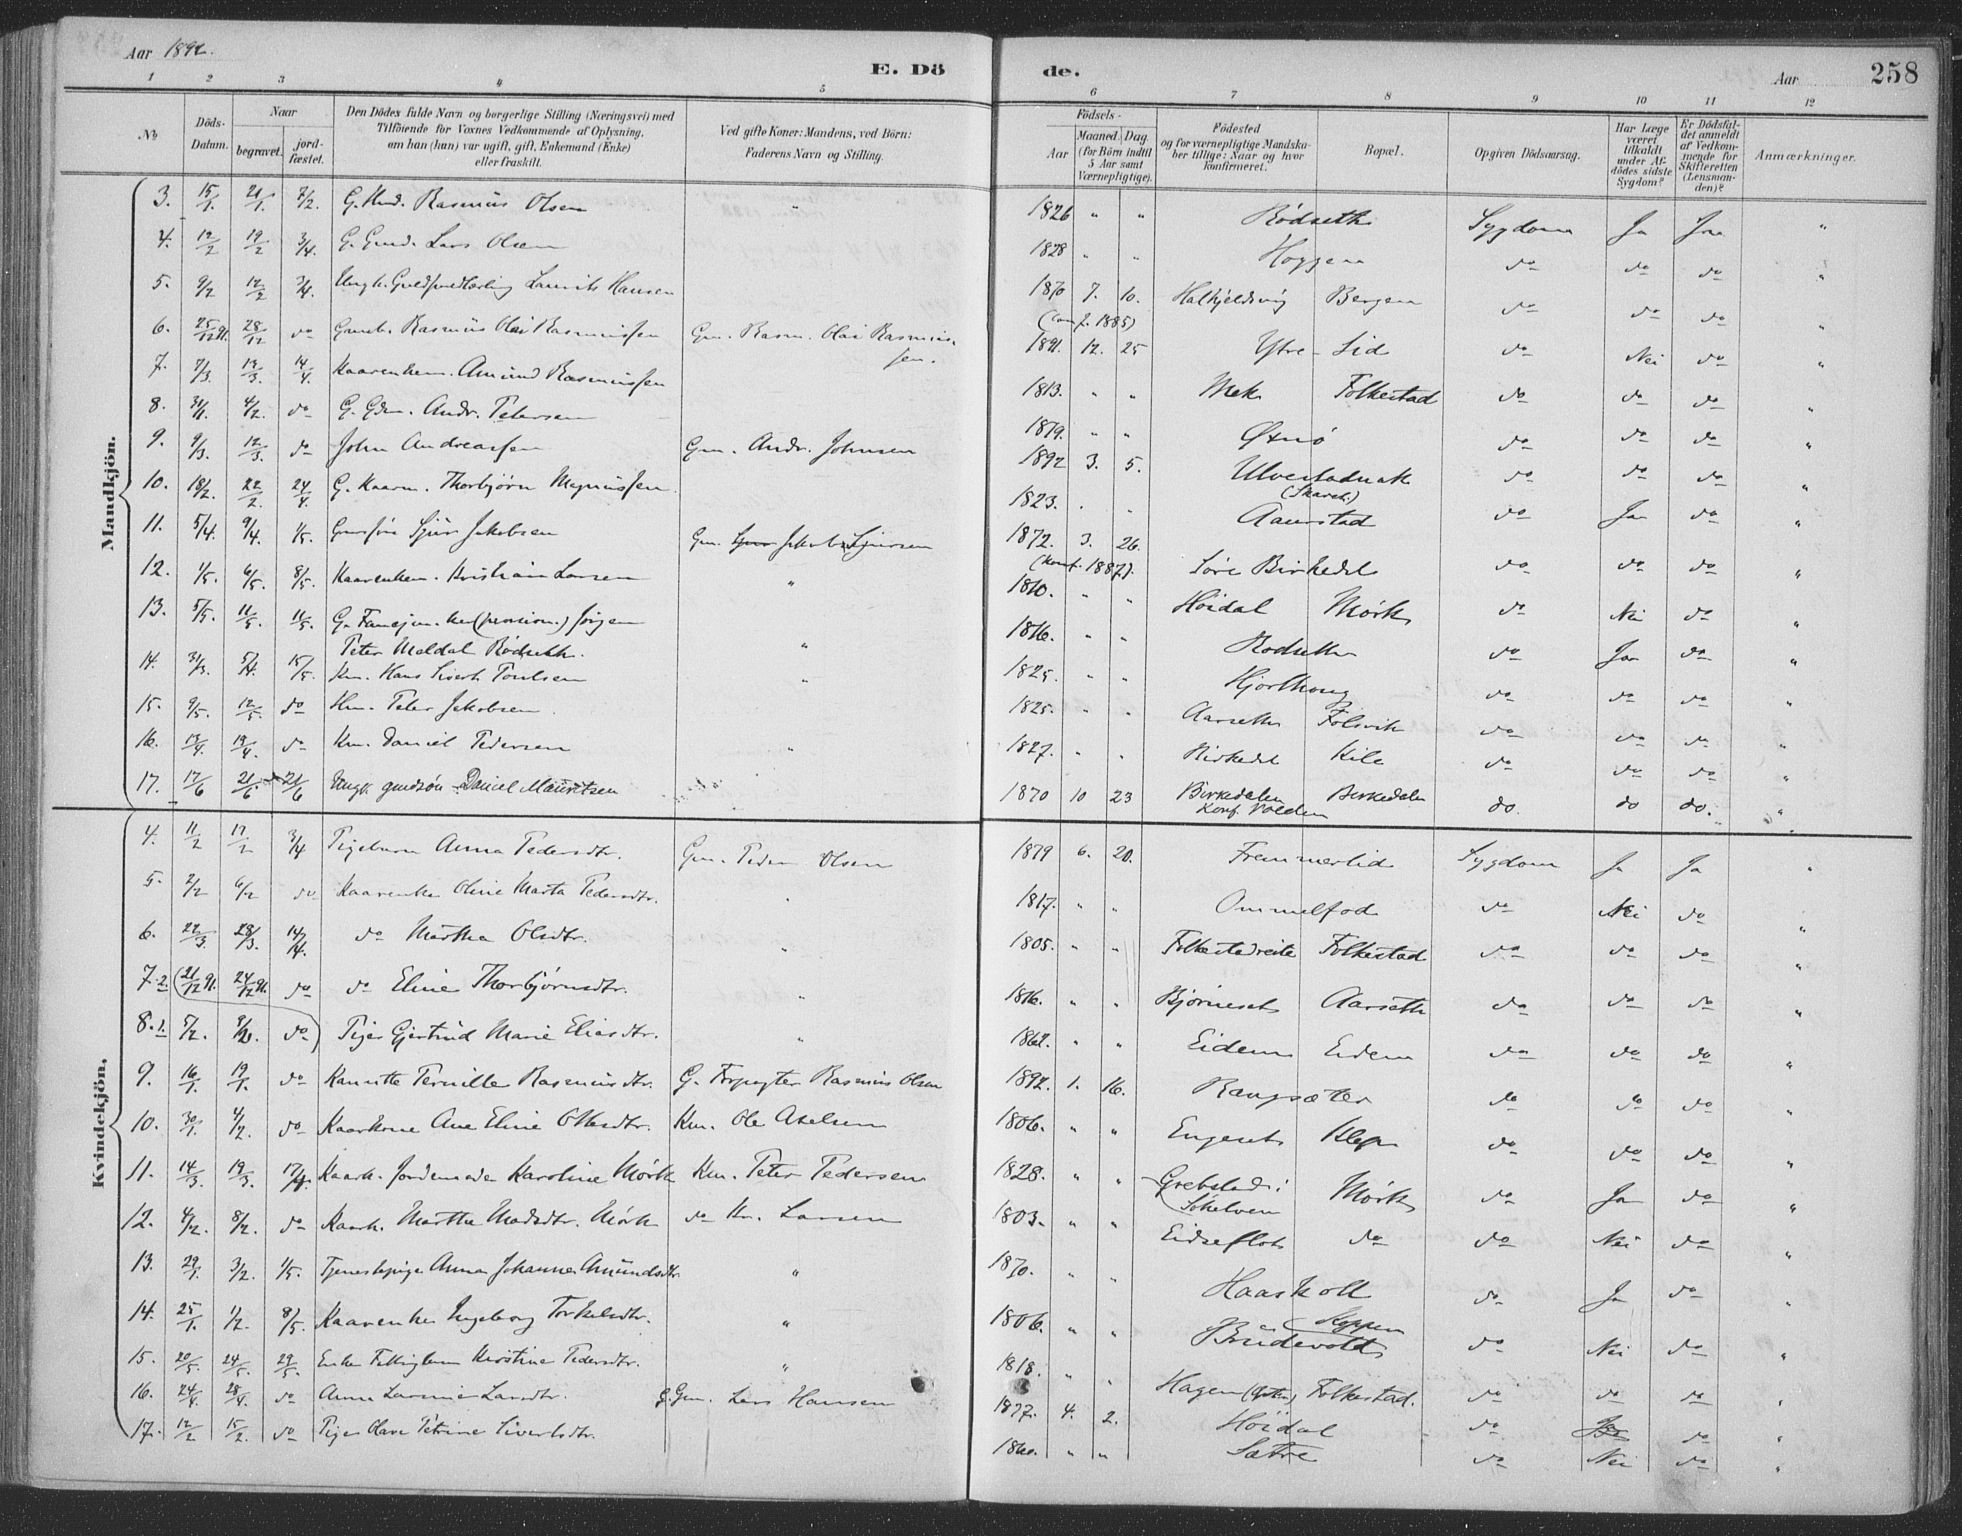 Aar 1892.
E. Döde.
Aar
258
1 2 3 4 5 6 7 8 9 10 11 12
No
Döds-Datum.
Naar
begravet.
jord-fæstet.
Den Dödes fulde Navn og borgerlige Stilling (Næringsvei) med
Tilföiende for Voxnes Vedkommende af Oplysning,
om han (hun) var ugift, gift, Enkemand (Enke)
eller fraskilt.
Ved gifte Koner: Mandens, ved Börn:
Faderens Navn og Stilling.
Födsels-
Aar
Maaned. Dag.
(for Börn indtil
5 Aar samt
Værnepligtige).
Födested
og for værnepligtige Mandska-
ber tillige: Naar og hvor
konfirmeret.
Bopæl.
Opgiven Dödsaarsag.
Har Læge
været
tilkaldt
under Af-
dödes sidste
Sygdom?
Er Dödsfal-
det anmeldt
af Vedkom-
mende for
Skifteretten
(Lensman-
den)?
Anmærkninger.
Mandkjön.
3. 15/1. 21/1. 7/2. Rasmus Olsen " 1826 " " Rödseth Sygdom Ja Ja "
4. 12/2 19/2 3/4. G. Gmd. Lars Olsen 1828 " " Hoggen do do do "
5. 9/2 12/2 3/4. Ungk. Guldsmedlærling Laurits Hansen 1870 7. 10. Halkjeldsvig Bergen do do do "
(Conf. 1885)
6. 25/12 91. 28/12 do Gmdb. Rasmus Olai Rasmussen Gm. Rasm. Olai Rasmus-
sen. 1891. 12. 25 Ytre-Lid do Nei do "
7. 7/3. 13/3. 14/4. Kaarenkem. Amund Rasmussen 1813. " " Mek Folkestad do do do "
8. 31/1. 4/2. do G. Gdm. Andr. Petersen 1819. " " do do do "
9. 9/3. 12/3. do John Andreassen Gm. Andr. Johnsen 1892 3. 5. do do do "
10. 18/2. 22/2. 24/4. G. Kaarm. Thorbjørn Magnussen 1823. " " Aanstad do Ja do "
11. 5/4. 9/4. 1/5. Sjur Jakobsen Gm. Jakob Sjursen 1872. 3. 26. Søre Birkedal do do do "
(Konf. 1887).
12. 1/5. 6/5. 8/5. Kaarenkem. Kristian Larsen " 1810. " " Höidal Mørk do Nei do "
13. 5/5. 11/5. 11/5. (pension.) Jörgen
Peter Meldal Rödseth. " 1816. " " Rodseth do Ja do "
14. 31/3. 5/4. 15/5. Km. Hans Sivert Poulsen " 1825. " " Hjorthoug do do do "
15. 9/5. 12/5. do Hm. Peter Jakobsen 1825. " " Aarseth Folsvik do do do "
16. 13/4. 19/4. do Km. Daniel Pedersen " 1827. " " Birkedal Kile do do do "
17. 17/6 21/6. 21/6 Ungk. gmdsön Daniel Mauritsen 1870 10 23 Birkedalen Birkedalen do. do do. "
Konf. Volden
Kvindekjön.
4. 11/2 17/2 3/4 Pigebarn Anna Pedersdtr. Gm. Peder Olsen 1879 6. 20. Fremmerlid Sygdom Ja Ja "
5. 2/2 6/2 do Kaarenke Oline Marta Pedersdtr. " 1817. " " Ommelfod do Nei do "
6. 22/3. 28/3. 14/4. do Martha Olsdtr. " 1805. " " Folkestadreite Folkestad do do do "
7.2 (21/12 91. 24/12 91. do do Eline Thorbjørnsdtr. " 1816. " " Bjørneset Aarseth do do do "
8.1. 5/2. 9/2. do) Pige Gjertrud Marie Eliasdtr. " " " Eidem Eidem do do do "
9. 16/1. 19/1. do Pernille Rasmusdtr. G. Forpagter Rasmus Olsen 1892. 1. 16. do do do "
10. 30/1. 4/2. do Kaarkone Ane Eline Olsdtr. Km. Ole Axelsen 1806. " " Engeset Klep do do do "
11. 14/3. 19/3. 17/4. Kaark. Jordemoder Karoline Mörk Km. Peter Pedersen 1828. " " Grebstad i Mørk do Ja do "
Sökelven
12. 4/2. 8/2. do Kaark. Martha Madsdtr. Mörk do Kr. Larsen 1803. " " Eidseflot do do Nei do "
13. 29/1. 3/2. 1/5. Tjenestepige Anna Johanna Amundsdtr. " 1870. " " Haaskoll do Ja do "
14. 25/1. 1/2. 8/5. Kaarenke Ingeborg Torkelsdtr. " 1806. " " Brudevold do Nei do "
15. 20/5. 24/5. 29/5. Enke Fattiglem Kristine Pedersdtr. " 1818. " " Hagen Folkestad. do do do
16. 24/4. 28/4. do Anna Larsdtr. G. Gm. Lars Hansen 1877. 4. 2. Höidal do do "
17. 12/2 15/2. do Pige Petrine Sivertsdtr. " " Sætre do Nei do "